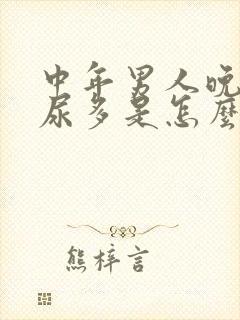 中年男人晚
尿多是怎麼
熊梓言